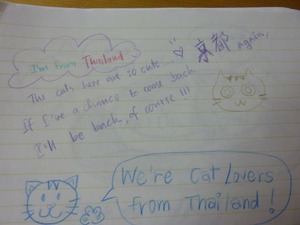 I'm from Thailand
The cats here are so cute...
If I've a chance to come back 京都 again,
I'll be back, of course !!!
We're Cat Lovers
from Thailand !